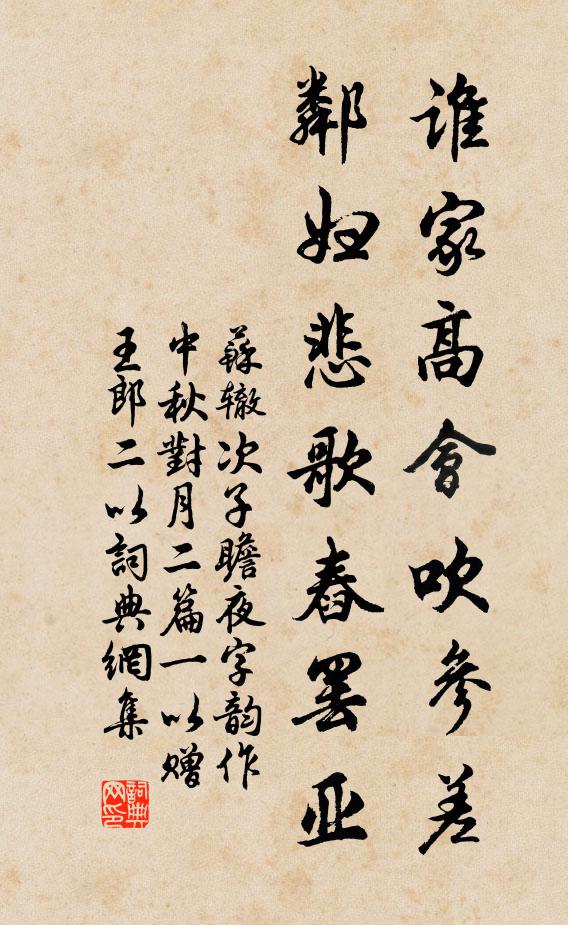 誰家高會吹參差
鄰妇悲歌舂罢亚
蘇辙次子瞻夜字韵作
中秋對月二篇一以赠
王郎二以詞典網集
詞典
网印